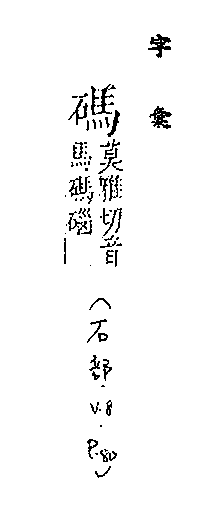 字彙
碼莫雅切音
馬碼碯
(石部·V.8·P.80)